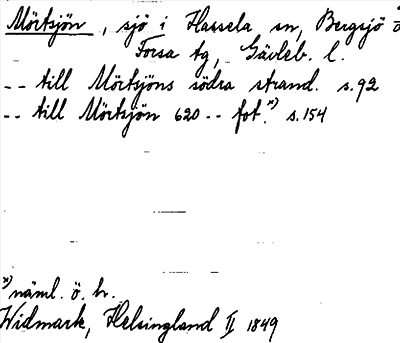 Mörtsjön, sjö i Hassela sn, Bergsjö o
Forsa tg, Gävleb. l.
-- till Mörtsjöns södra strand. s. 92
-- till Mörtsjön 620 -- fot.*) s. 154
*) näml. ö. h.
Widmark, Helsingland II 1849